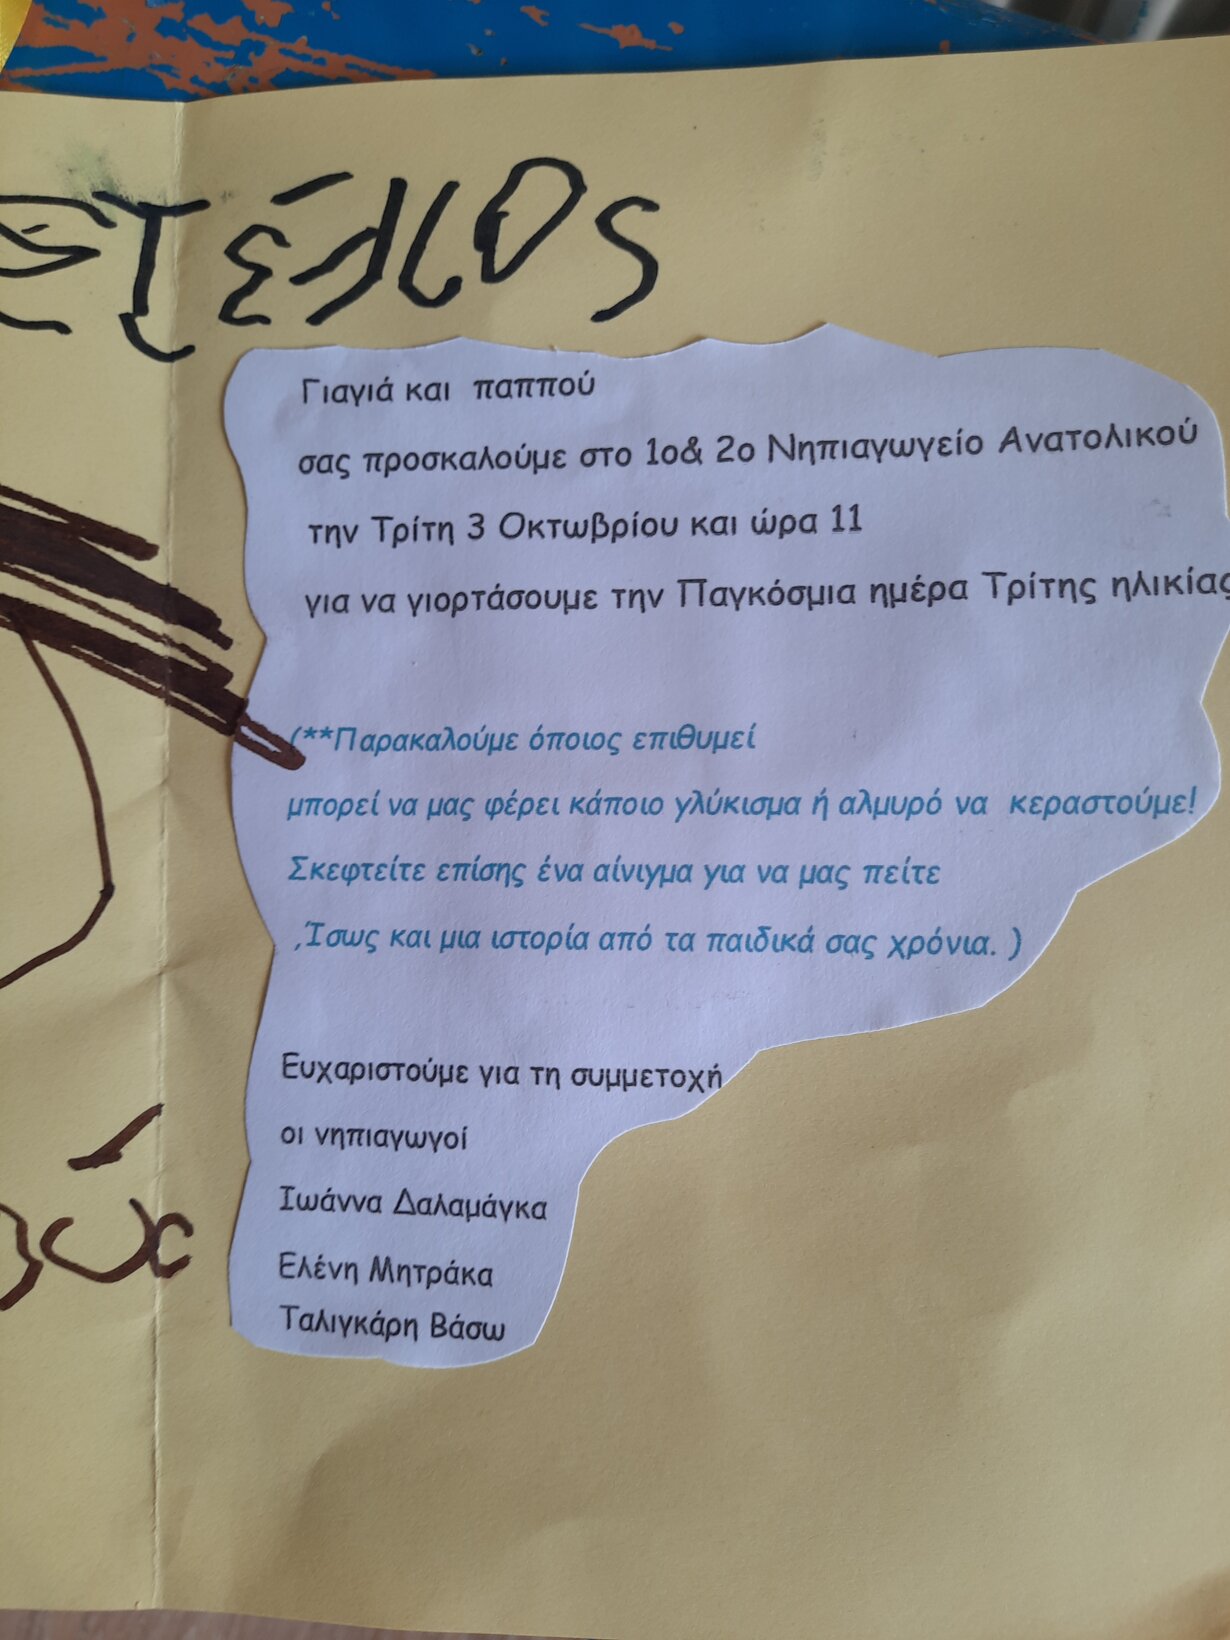 Γιαγιά και παππού
σας προσκαλούμε στο 1ο& 2ο Νηπιαγωγείο Ανατολικού
την Τρίτη 3 Οκτωβρίου και ώρα 11
για να γιορτάσουμε την Παγκόσμια ημέρα Τρίτης ηλικίας
(**Παρακαλούμε όποιος επιθυμεί
μπορεί να μας φέρει κάποιο γλύκισμα ή αλμυρό να κεραστούμε!
Σκεφτείτε επίσης ένα αίνιγμα για να μας πείτε
,Ίσως και μια ιστορία από τα παιδικά σας χρόνια. )
Ευχαριστούμε για τη συμμετοχή
οι νηπιαγωγοί
Ιωάννα Δαλαμάγκα
Ελένη Μητράκα
Ταλιγκάρη Βάσω